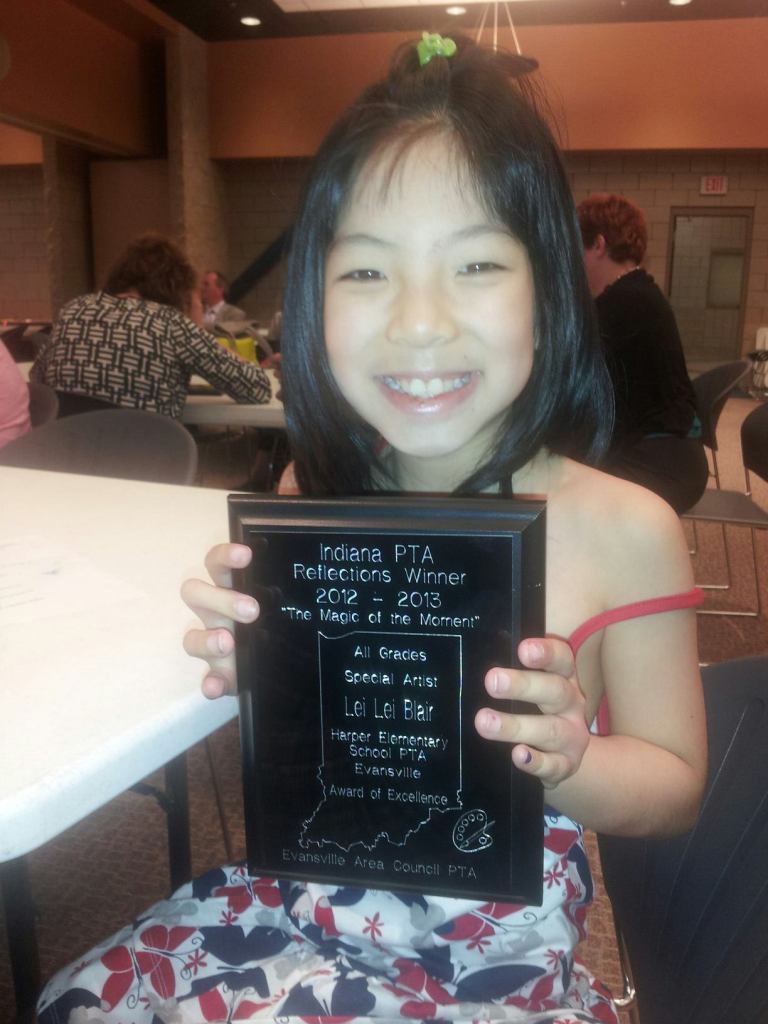 EXIT
Indiana PTA
Reflections Winner
2012 - 2013
"The Magic of the Moment"
All Grades
Special Artist
Lei Lei Blair
Harper Elementary
School PTA
Evansville
Award of Excellence
Evansville Area Council PTA